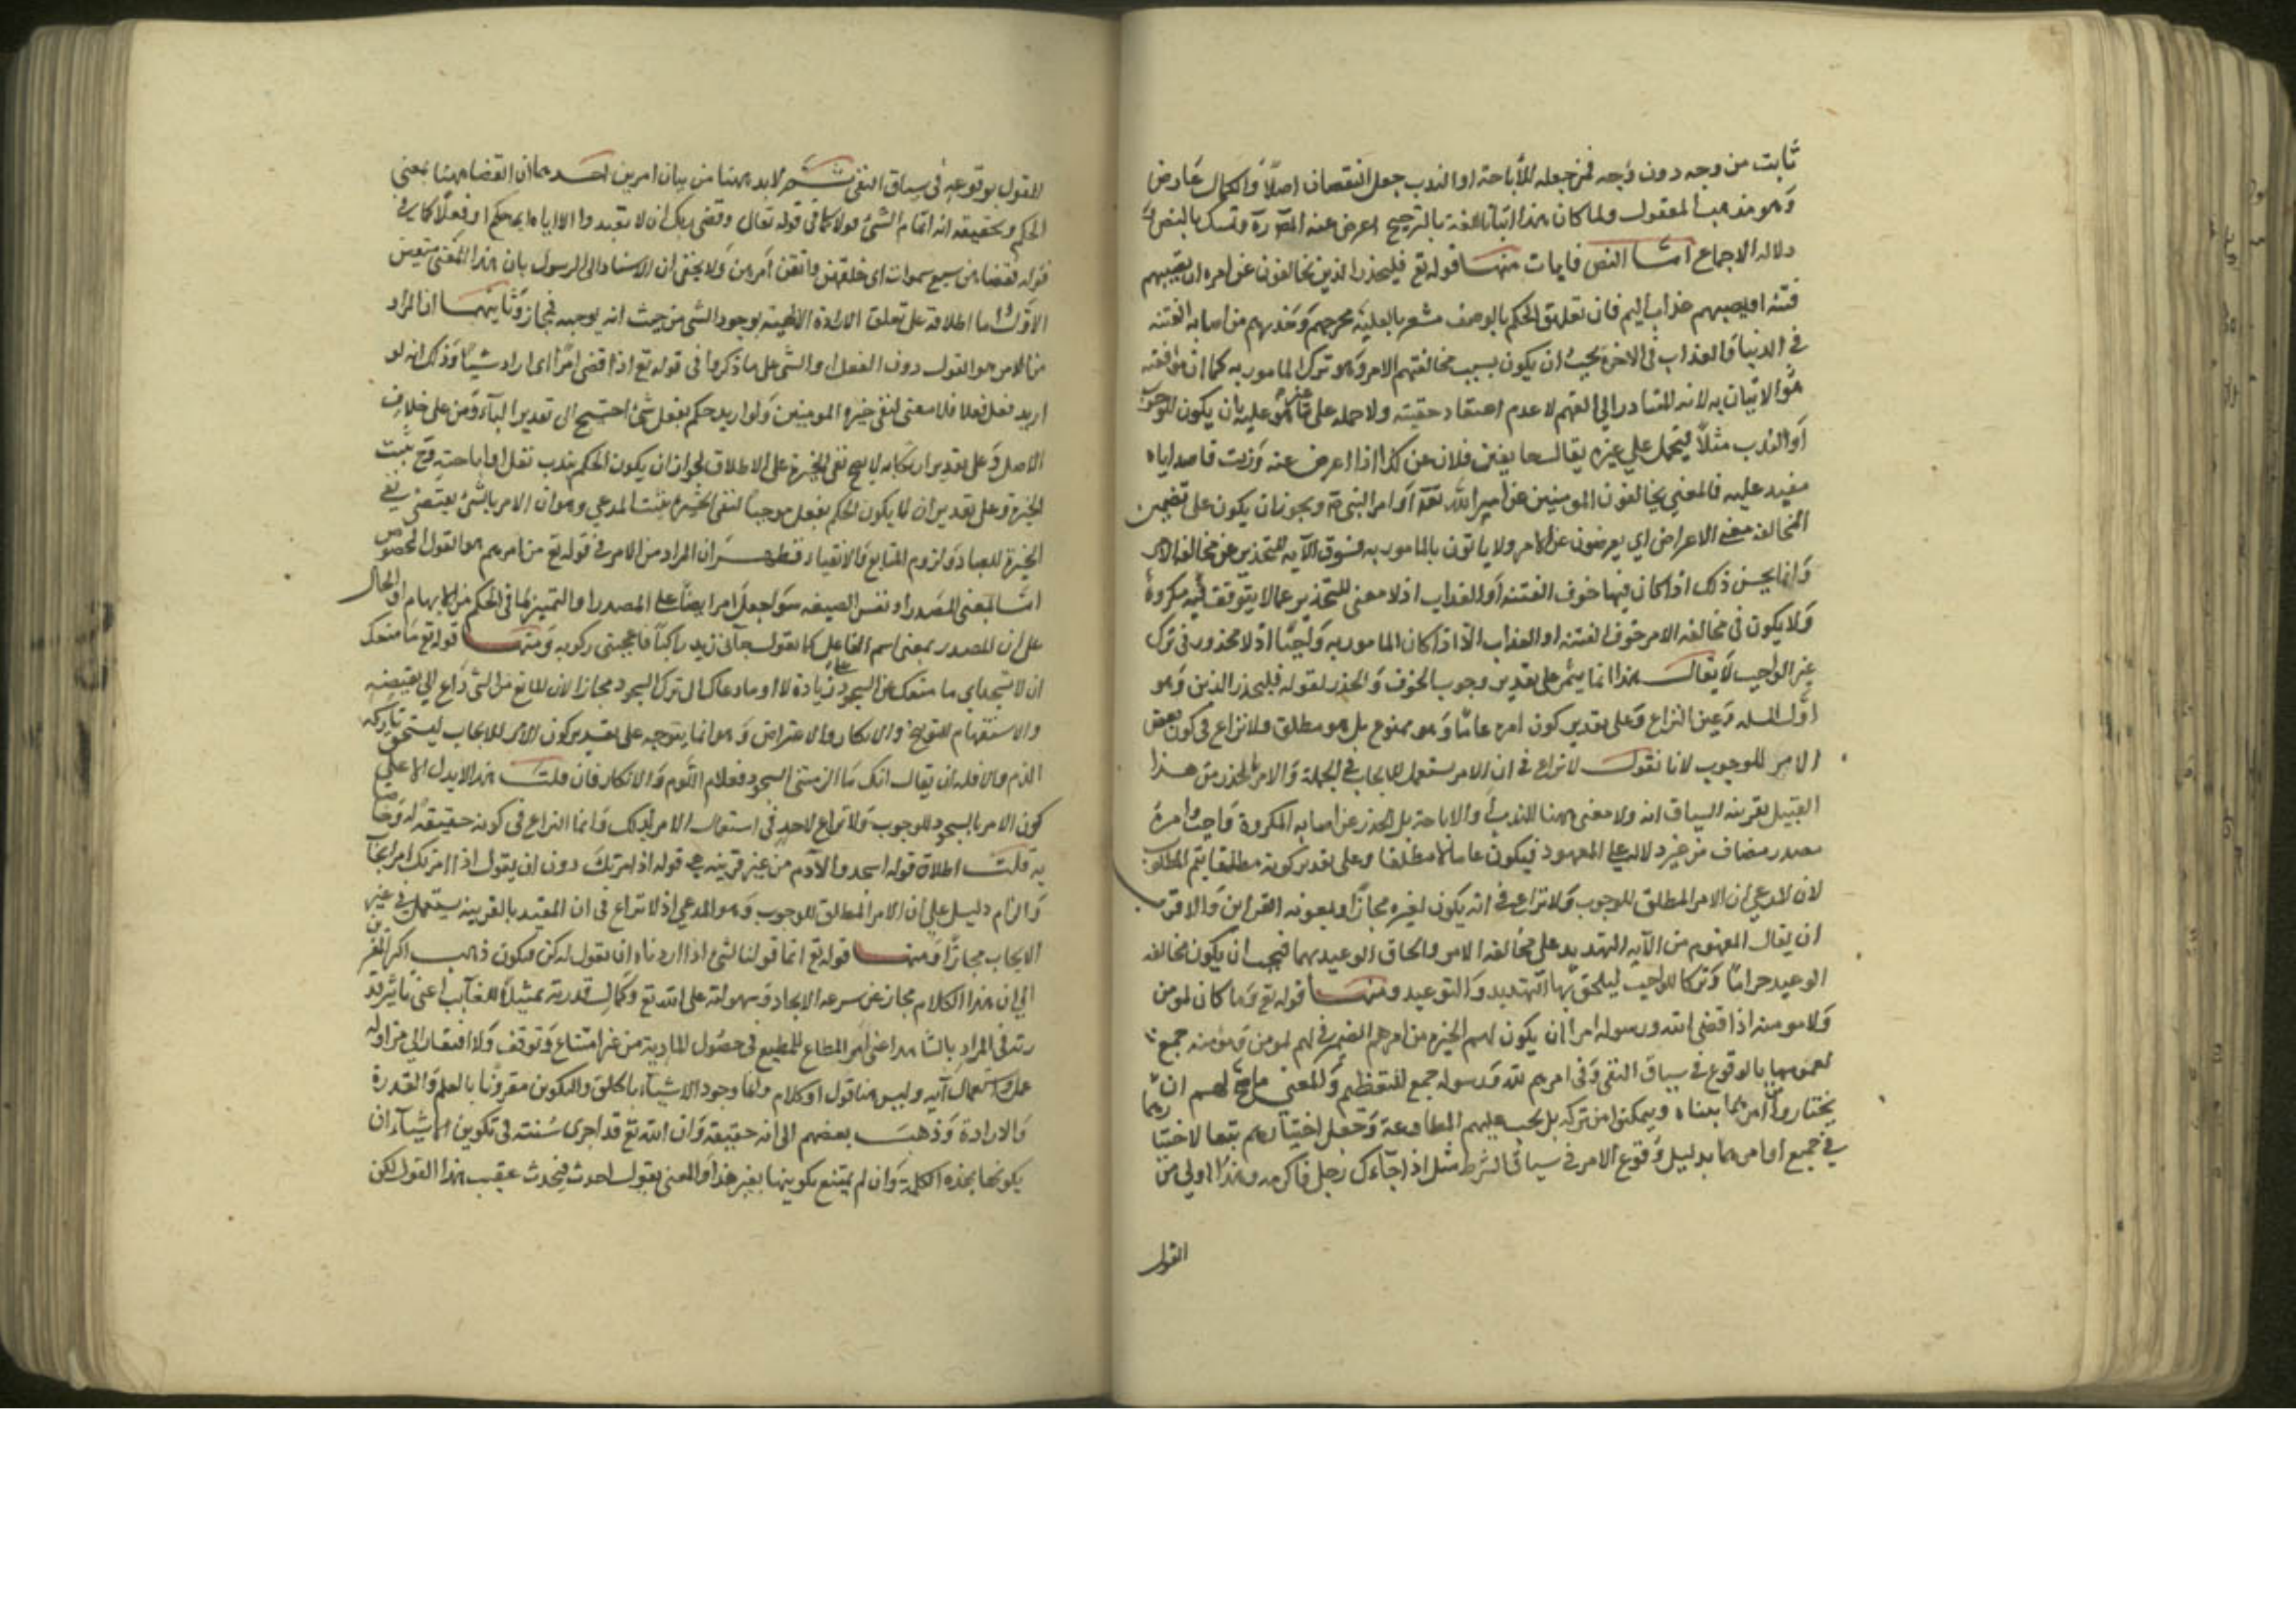 ثابت من وجه دون وجه فمن جعله للاباحة او الندب جعل النقصان اصلا والكمال عارض
وهو مذهب المعقول ولما كان هذا اثباتا للغة بالترجيح اعرض عنه المص ره وتمسك بالنص و
دلاله الاجماع اما النص فايات منها قوله تع فليحذر الذين يخالفون عن امره ان تصيبهم
فتنه او يصيبهم عذاب اليم فان تعليق الحكم بالوصف مشعر بالعلية من اصابه الفتنه
في الدنيا والعذاب في الاخره يجب ان يكون بسبب مخالفتهم الامر وهو ترك المامور به كما ان موافقته
هو الاتيان به لانه المتبادر الى الفهم لا عدم اعتقاد حقيته ولا حمله على غير ما هو عليه بان يكون للوجوب
او الندب مثلا فيحمل على غيره يقال خالفنى فلان عن كذا اذا اعرض عنه وانت قاصد اياه
مقبل عليه فالمعنى يخالفون المومنين عن امر الله تع او امر النبى ويجوز ان يكون على تضمين
المخالفه معنى الاعراض اي يعرضون عن الامر ولا ياتون بالمامور به فسوق الآيه للتحذير عن مخالفه الامر
وانما يحسن ذلك اذا كان فيها خوف الفتنه او العذاب اذ لا معنى للتحذير عما لا يتوقع فيه مكروه
ولا يكون في مخالفه الامر خوف الفتنه او العذاب الا اذا كان المامور به واجبا اذ لا محذور في ترك
غير الواجب لا يقال هذا انما يتم على تقدير وجوب الخوف والحذر لقوله فليحذر الذين وهو
اول المسله وعين النزاع وعلى تقدير كون امره عاما وهو ممنوع بل هو مطلق ولا نزاع في كون بعض
الامر للوجوب لانا نقول لا نزاع في ان الامر يستعمل للايجاب في الجملة والامر بالحذر من هذا
القبيل بقرينه السياق انه ولا معنى ههنا للندب والاباحة بل الحذر عن اصابه المكروه واجب وامره
مصدر مضاف من غير دلاله على المعهود فيكون عاما لا مطلقا وعلى تقدير كونه مطلقا يتم المطلوب
لان المدعى ان الامر المطلق للوجوب ولا نزاع في انه يكون لغيره مجازا وبمعونه القراين والاقرب
ان يقال المفهوم من الآيه التهديد على مخالفه الامر والحاق الوعيد بهما فيجب ان يكون مخالفه
الوعيد حراما وتركا للواجب ليلحق بها التهديد والتوعيد ومنها قوله تع وما كان لمومن
ولا مومنه اذا قضى الله ورسوله امرا ان يكون لهم الخيره من امرهم الضمير في لهم لمومن ومومنه جمع
لعمومهما بالوقوع في سياق النفى وفى امرهم لله ورسوله جمع للتعظيم والمعنى ما صح لهم ان
يختاروا من امرهما بل يجب عليهم المطاوعة وجعل اختيارهم تبعا لاختيارهما
في جميع اوامرهما بدليل وقوع الامر في سياق الشرط مثل اذا جاءك رجل فاكرمه وهذا اولى من
القول
القول بوقوعه في سياق النفى ثم لابد ههنا من بيان امرين احدهما ان القضا ههنا بمعنى
الحكم وتحقيقه انه اتمام الشئ قولا كما في قوله تعالى وقضى ربك ان لا تعبدوا الا اياه اى حكم او فعلا كما في
قوله فقضاهن سبع سموات اى خلقهن واتقن امرهن ولا يخفى ان الاسناد الى الرسول يابى هذا المعنى فتعين
الاول واما اطلاقه على تعلق الارادة الالهية بوجود الشى من حيث انه يوجبه فمجاز وثانيهما ان المراد
من الامر هو القول دون الفعل او الشى على ما ذكروا في قوله تع اذا قضى امرا اى اراد شيئا وذلك انه لو
اريد فعل فعلا فلا معنى لنفى خيره المومنين ولو اريد حكم بفعل شئ احتيج الى تقدير الباء ومن على خلاف
الاصل وعلى تقدير ارتكابه لا يصح نفى الخيرة على الاطلاق لجواز ان يكون الحكم بندب فعل او اباحته وح يثبت
الخيرة وعلى تقدير ان يكون الحكم بفعل موجبا لنفى الخيرة يثبت المدعى وهو ان الامر بالشئ يقتضى نفى
الخيرة للعباد ولزوم المتابعة والانقياد فظهر ان المراد من الامر في قوله تع من امرهم هو القول المخصوص
اما بمعنى المصدر او نفس الصيغه سوا جعل امرا نصبا على المصدر او التمييز لما في الحكم من الابهام او الحال
على ان المصدر بمعنى اسم الفاعل كما تقول جاءنى زيد راكبا فاعجبنى ركوبه ومنها قوله تع ما منعك
ان لا تسجد اي ما منعك عن السجود على زيادة لا او ما دعاك الى ترك السجود مجازا لان المانع من الشئ داع الى نقيضه
والاستفهام للتوبيخ والانكار والاعتراض وهو انما يتوجه على تقدير كون الامر للايجاب ليستحق تاركه
الذم والا فله ان يقال انك ما الزمتنى السجود فعلام اللوم والانكار فان قلت هذا لا يدل الا على
كون الامر بالسجود للوجوب ولا نزاع لاحد في استعمال الامر لذلك وانما النزاع في كونه حقيقة له وخاصا
به قلت اطلاق قوله اسجدوا لآدم من غير قرينه مع قوله اذ امرتك دون ان يقول اذ امرتك امر ايجاب
والزام دليل على ان الامر المطلق للوجوب وهو المدعى اذ لا نزاع فى ان المقيد بالقرينه يستعمل في غير
الايجاب مجازا ومنها قوله تع انما قولنا لشئ اذا اردناه ان نقول له كن فيكون ذهب اكثر المفسرين
الى ان هذا الكلام مجاز عن سرعه الايجاد وسهولته على الله تع وكمال قدرته تمثيلا للغايب اعنى تاثير قد
رته في المراد بالشاهد اعنى امر المطاع للمطيع في حصول المامور به من غير امتناع وتوقف ولا افتقار الى مزاوله
عمل واستعمال آله وليس هنا قول او كلام وانما وجود الاشياء بالخلق والتكوين مقرونا بالعلم والقدرة
والارادة وذهب بعضهم الى انه حقيقة وان الله تع قد اجرى سنته في تكوين الاشياء ان
يكونها بهذه الكلمة وان لم يمتنع تكوينها بغيرها والمعنى يقول احدث فيحدث عقيب هذا القول لكن